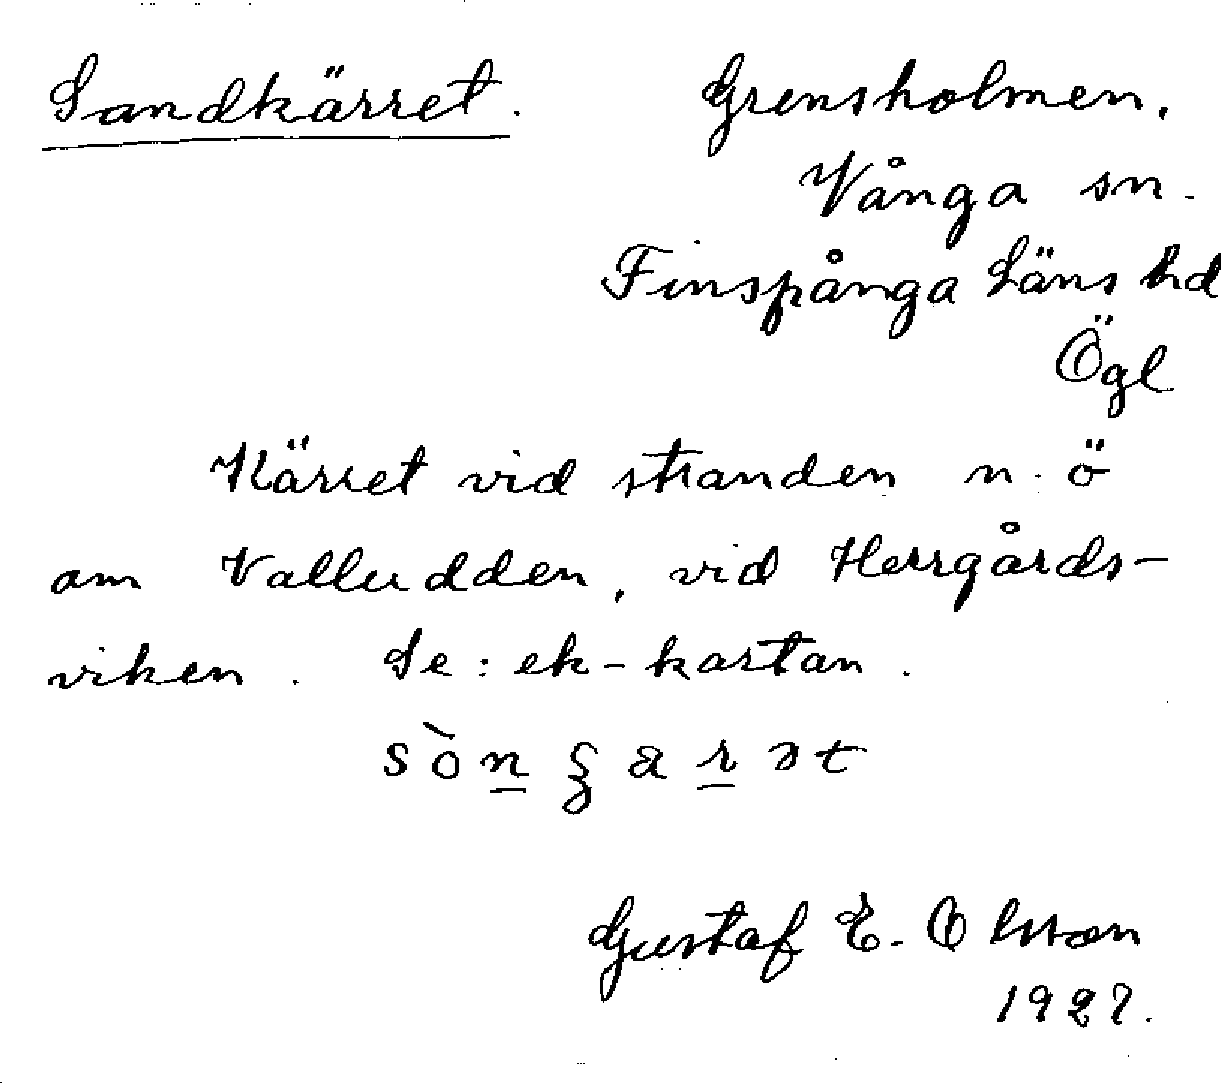 Sandkärret. Grensholmen.
Vånga sn.
Finspånga Läns hd
Ögl
Kärret vid stranden n. ö
om Valludden, vid Herrgårds-
viken. Se: ek-kartan.
sòn̲ a r̲ ət
Gustaf E. Olsson
1927.